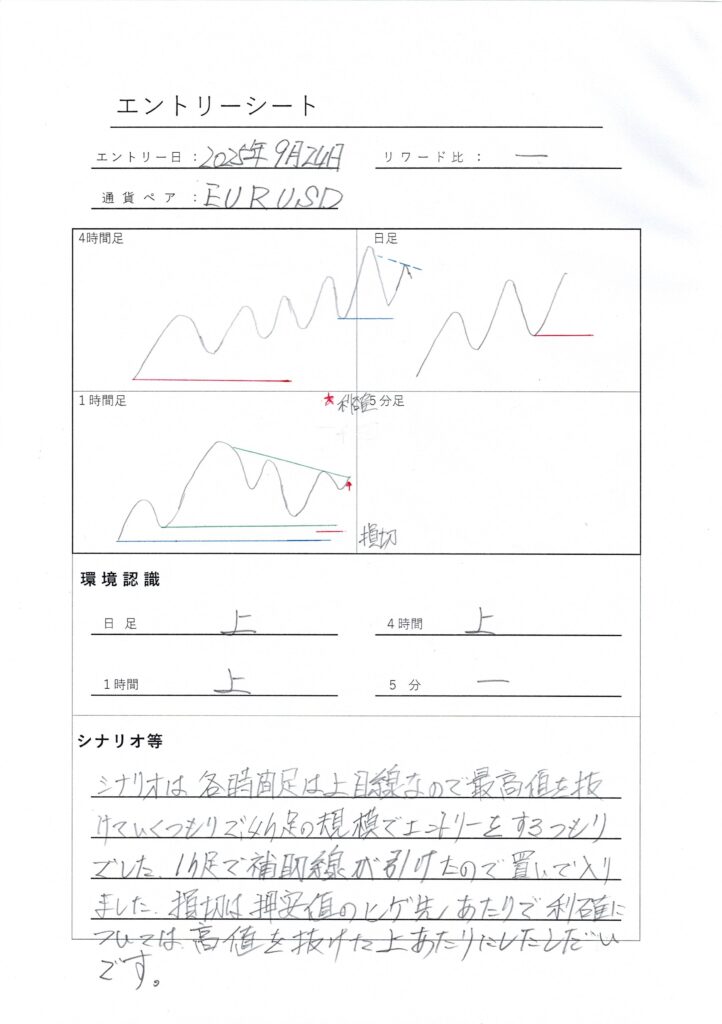 エントリーシート
エントリー日：2025年9月24日
リワード比：ー
通貨ペア：EURUSD
4時間足
日足
1時間足
利確
5分足
損切
環境認識
日足 上
4時間 上
1時間 上
5分 ー
シナリオ等
シナリオは各時間足は上目線なので最高値を抜
けていくつもりで、4h足の規模でエントリーをするつもり
でした。1h足で補助線が引けたので買いで入り
ました。損切は押安値のヒゲ先あたりで利確に
ついては高値を抜けた上あたりにしたしだい
です。